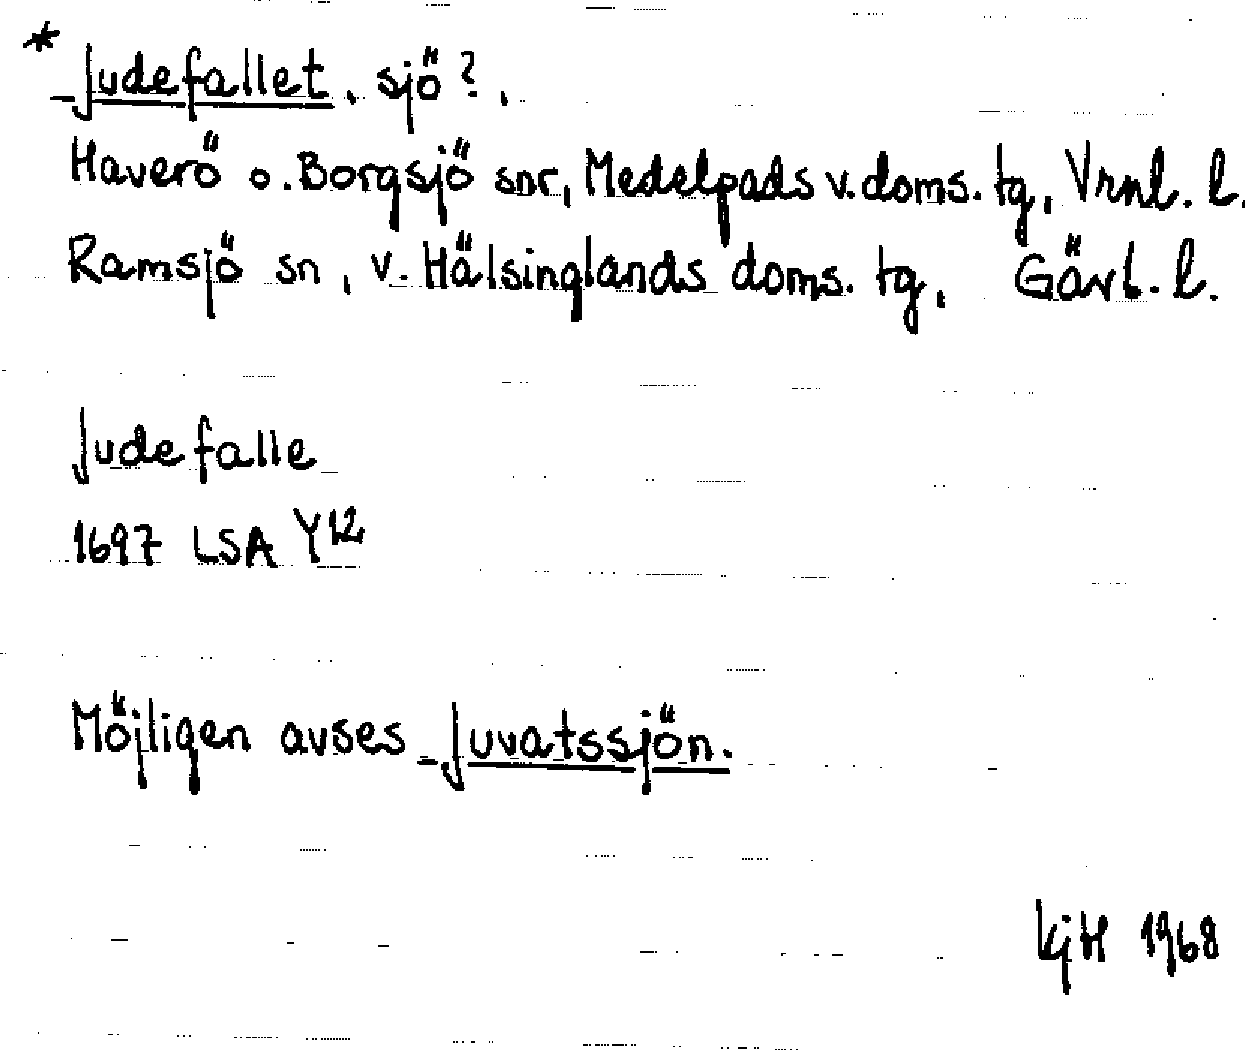 * Judefallet, sjö?,
Haverö o. Borgsjö snr, Medelpads v. doms. tg, Vrnl. l.
Ramsjö sn, v. Hälsinglands doms. tg, Gävl. l.
Judefalle
1697 LSA Y12
Möjligen avses Juvatssjön.
KjH 1968